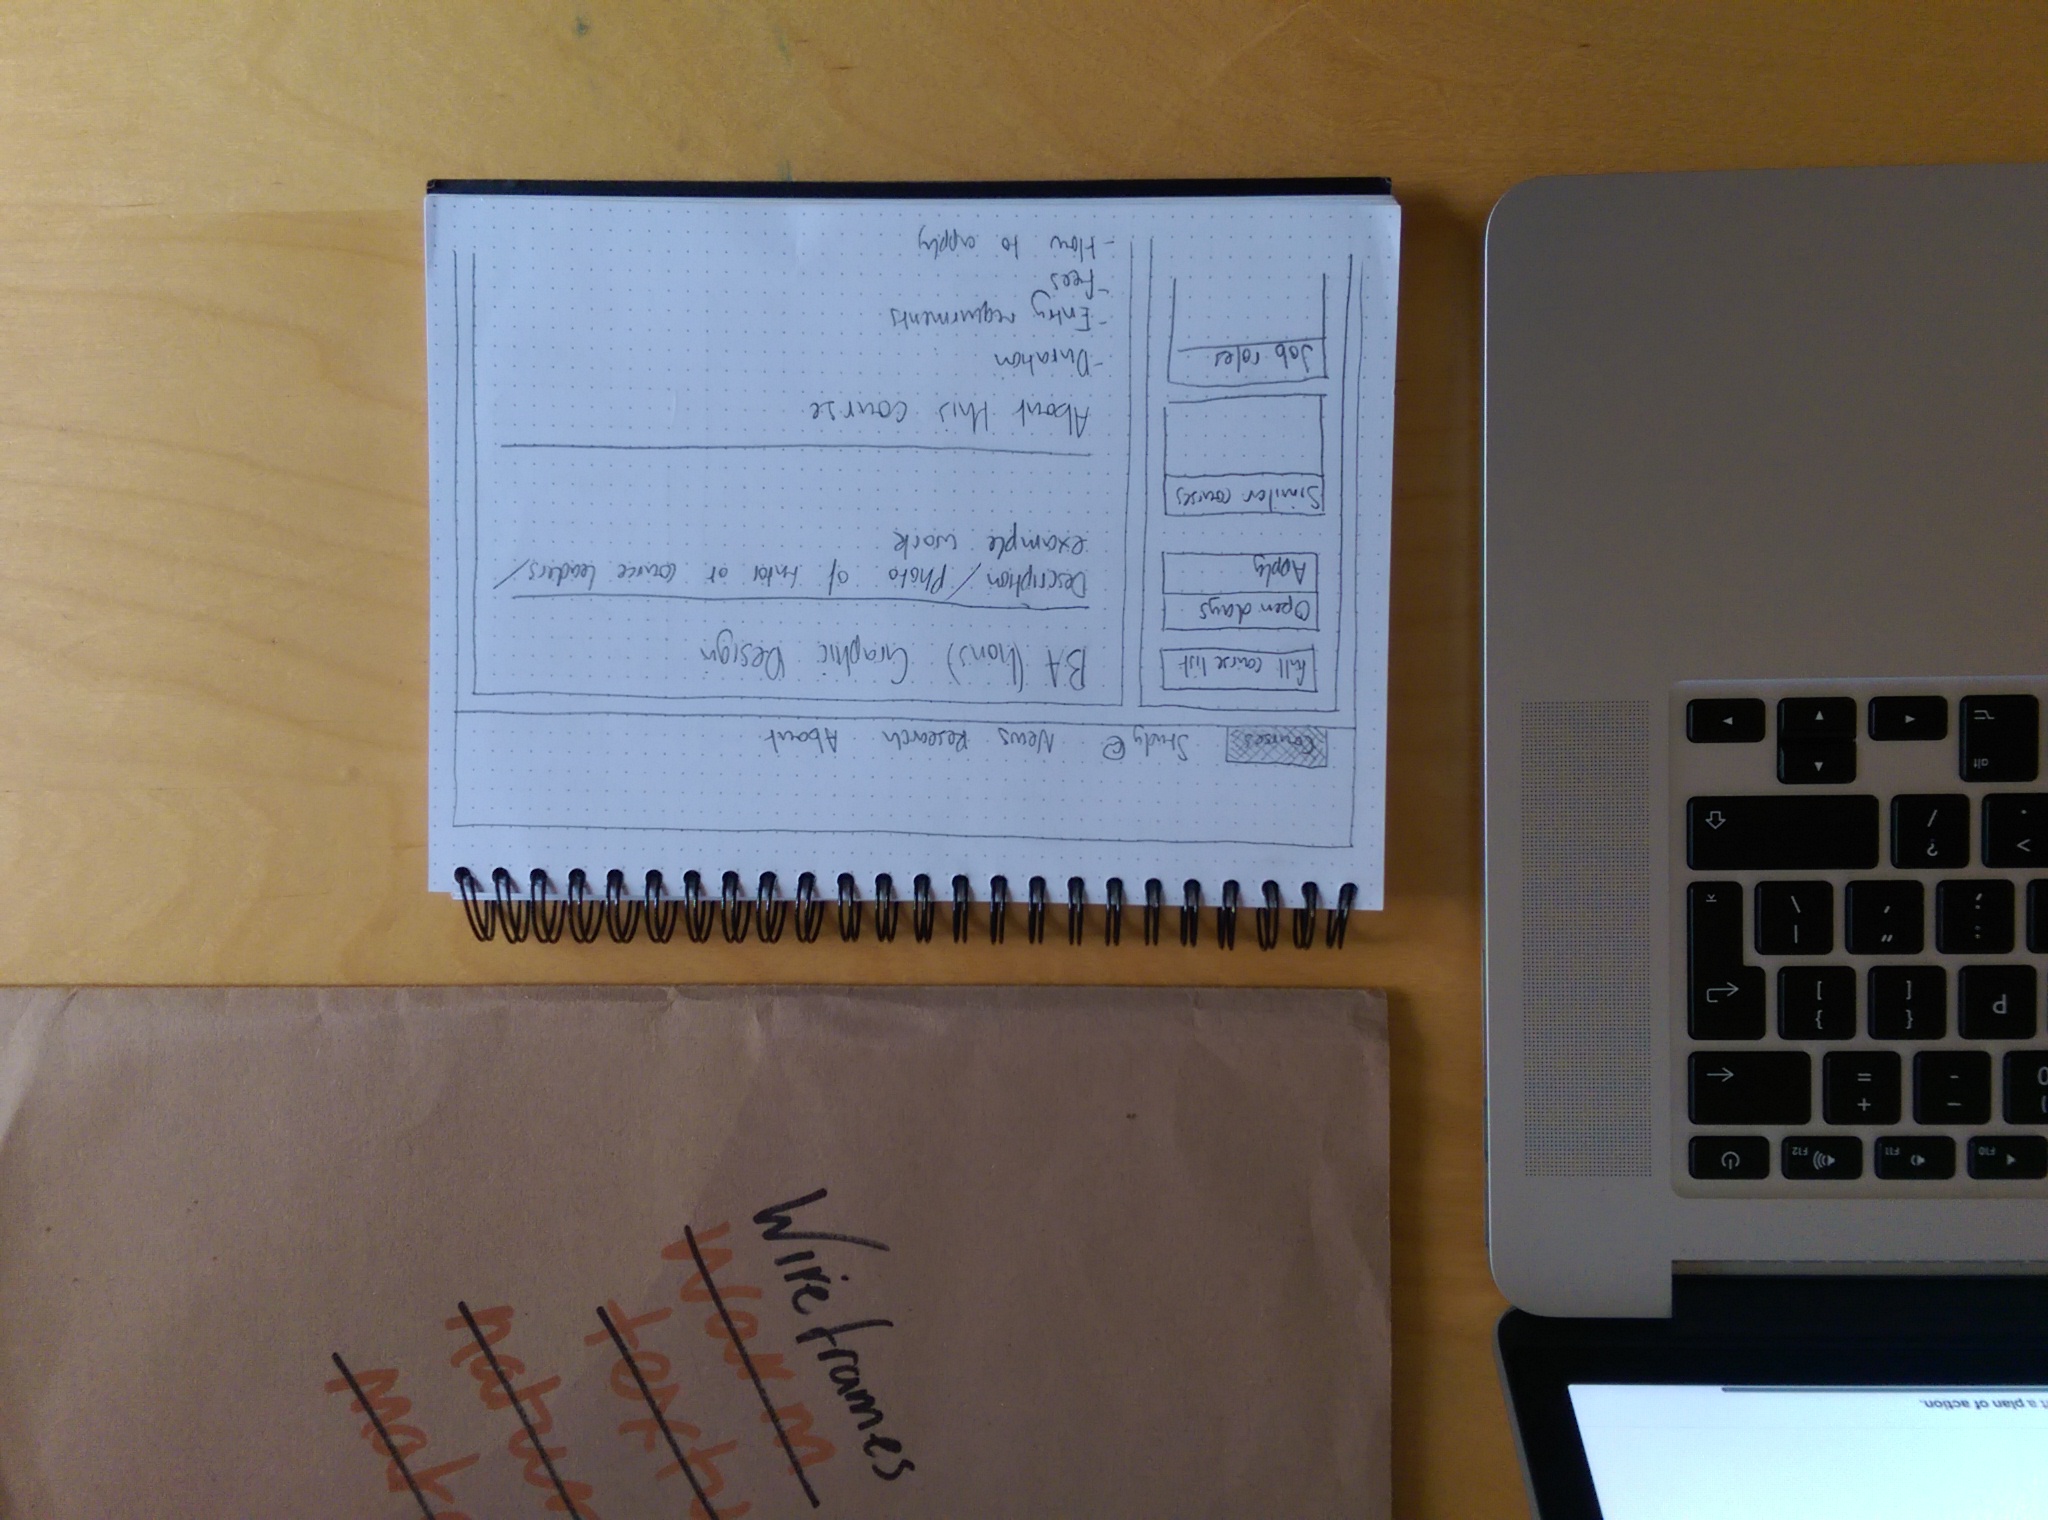 Courses Study @ News Research About
Full course list
Open days
Apply
Similar courses
Job roles
BA (hons) Graphic Design
Description / Photo of tutor or course leaders /
example work
About this course
- Duration
- Entry requirments
- Fees
- How to apply
Wireframes
Warm
a plan of action.
alt
? /
> .
\ |
" '
: ;
} ]
{ [
P
+ =
_ -
) 0
F12
F11
F10